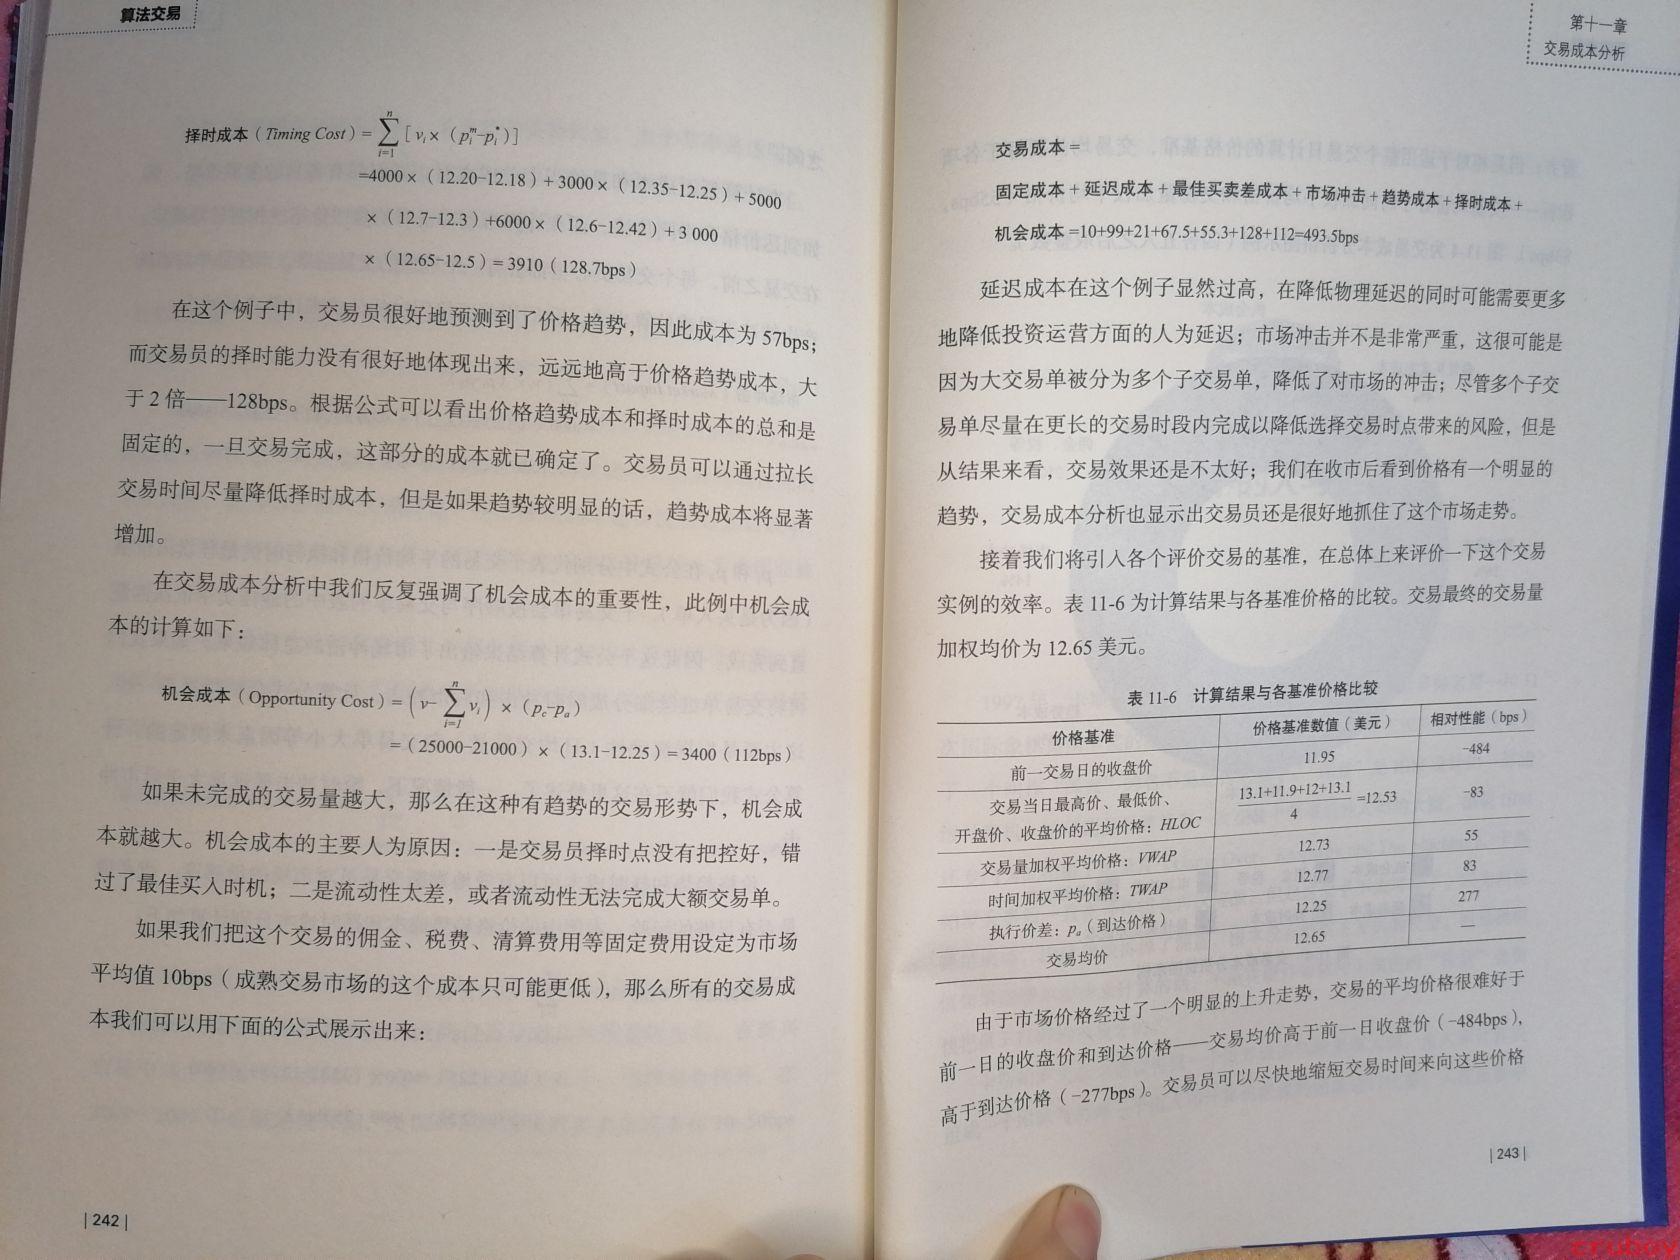 算法交易
择时成本（Timing Cost）= ∑ⁿᵢ₌₁ [ vᵢ×（pᵢᵐ-pᵢ*）]
=4000×（12.20-12.18）+3000×（12.35-12.25）+5000
×（12.7-12.3）+6000×（12.6-12.42）+3 000
×（12.65-12.5）= 3910（128.7bps）
在这个例子中，交易员很好地预测到了价格趋势，因此成本为 57bps；
而交易员的择时能力没有很好地体现出来，远远地高于价格趋势成本，大
于 2 倍——128bps。根据公式可以看出价格趋势成本和择时成本的总和是
固定的，一旦交易完成，这部分的成本就已确定了。交易员可以通过拉长
交易时间尽量降低择时成本，但是如果趋势较明显的话，趋势成本将显著
增加。
在交易成本分析中我们反复强调了机会成本的重要性，此例中机会成
本的计算如下：
机会成本（Opportunity Cost）= (v-∑ⁿᵢ₌₁vᵢ) ×（p_c-p_a）
=（25000-21000）×（13.1-12.25）= 3400（112bps）
如果未完成的交易量越大，那么在这种有趋势的交易形势下，机会成
本就越大。机会成本的主要人为原因：一是交易员择时点没有把控好，错
过了最佳买入时机；二是流动性太差，或者流动性无法完成大额交易单。
如果我们把这个交易的佣金、税费、清算费用等固定费用设定为市场
平均值 10bps（成熟交易市场的这个成本只可能更低），那么所有的交易成
本我们可以用下面的公式展示出来：
| 242 |
第十一章
交易成本分析
交易成本 =
固定成本 + 延迟成本 + 最佳买卖差成本 + 市场冲击 + 趋势成本 + 择时成本 +
机会成本 =10+99+21+67.5+55.3+128+112=493.5bps
延迟成本在这个例子显然过高，在降低物理延迟的同时可能需要更多
地降低投资运营方面的人为延迟；市场冲击并不是非常严重，这很可能是
因为大交易单被分为多个子交易单，降低了对市场的冲击；尽管多个子交
易单尽量在更长的交易时段内完成以降低选择交易时点带来的风险，但是
从结果来看，交易效果还是不太好；我们在收市后看到价格有一个明显的
趋势，交易成本分析也显示出交易员还是很好地抓住了这个市场走势。
接着我们将引入各个评价交易的基准，在总体上来评价一下这个交易
实例的效率。表 11-6 为计算结果与各基准价格的比较。交易最终的交易量
加权均价为 12.65 美元。
表 11-6 计算结果与各基准价格比较
价格基准 价格基准数值（美元） 相对性能（bps）
前一交易日的收盘价 11.95 -484
交易当日最高价、最低价、
开盘价、收盘价的平均价格：HLOC (13.1+11.9+12+13.1)/4 =12.53 -83
交易量加权平均价格：VWAP 12.73 55
时间加权平均价格：TWAP 12.77 83
执行价差：p_a（到达价格） 12.25 277
交易均价 12.65 —
由于市场价格经过了一个明显的上升走势，交易的平均价格很难好于
前一日的收盘价和到达价格——交易均价高于前一日收盘价（-484bps），
高于到达价格（-277bps）。交易员可以尽快地缩短交易时间来向这些价格
| 243 |